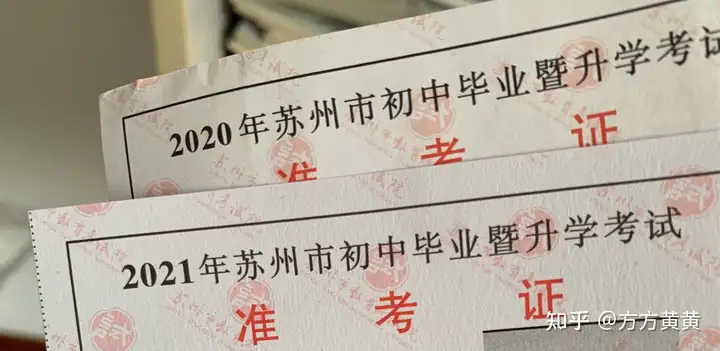 2020年苏州市初中毕业暨升学考试
准考证
2021年苏州市初中毕业暨升学考试
准考证
知乎 @方方黄黄